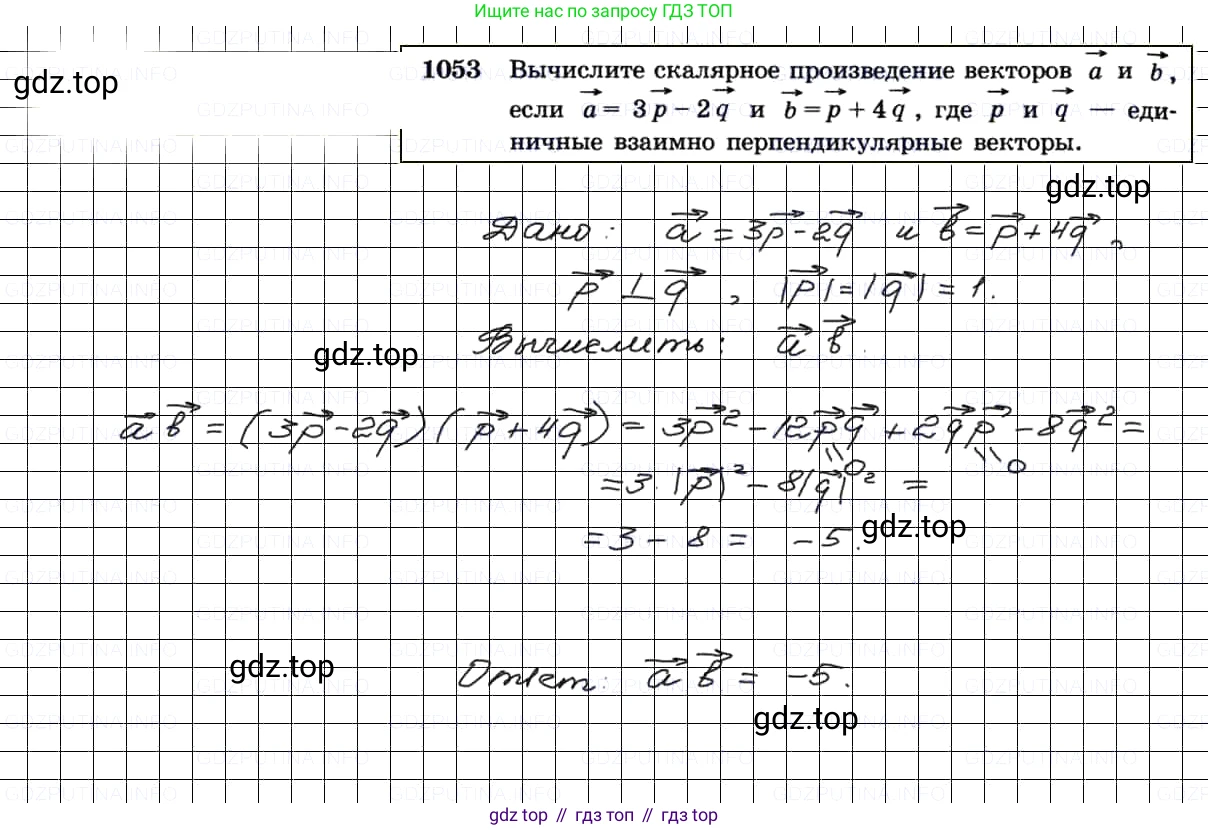 Ищите нас по запросу ГДЗ ТОП
gdz.top
1053 Вычислите скалярное произведение векторов a⃗ и b⃗,
если a⃗ = 3p⃗ − 2q⃗ и b⃗ = p⃗ + 4q⃗, где p⃗ и q⃗ — еди-
ничные взаимно перпендикулярные векторы.
gdz.top
Дано: a⃗ = 3p⃗ - 2q⃗ и b⃗ = p⃗ + 4q⃗,
p⃗ ⊥ q⃗, |p⃗| = |q⃗| = 1.
Вычислить: a⃗ b⃗.
gdz.top
a⃗ b⃗ = (3p⃗ - 2q⃗)(p⃗ + 4q⃗) = 3p⃗² - 12p⃗q⃗ + 2q⃗p⃗ - 8q⃗² =
\\ 0 \\ 0
= 3·|p⃗|² - 8|q⃗|² =
= 3 - 8 = -5.
gdz.top
gdz.top
Ответ: a⃗ b⃗ = -5.
gdz.top
gdz top // гдз топ // гдз top
GDZPUTINA.INFO